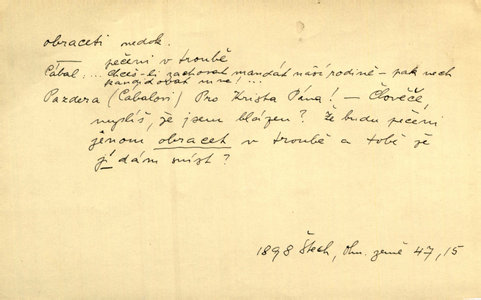 obraceti nedok.
pečeni v troubě
Cábal: ... chceš-li zachovat mandát naší rodině – pak nech
kandidovat mne! ...
Pazdera (Cábalovi) Pro Krista Pána! – Člověče,
myslíš, že jsem blázen? Že budu pečeni
jenom obracet v troubě a tobě že
ji dám sníst?
1898 Štech, Ohn. země 47, 15